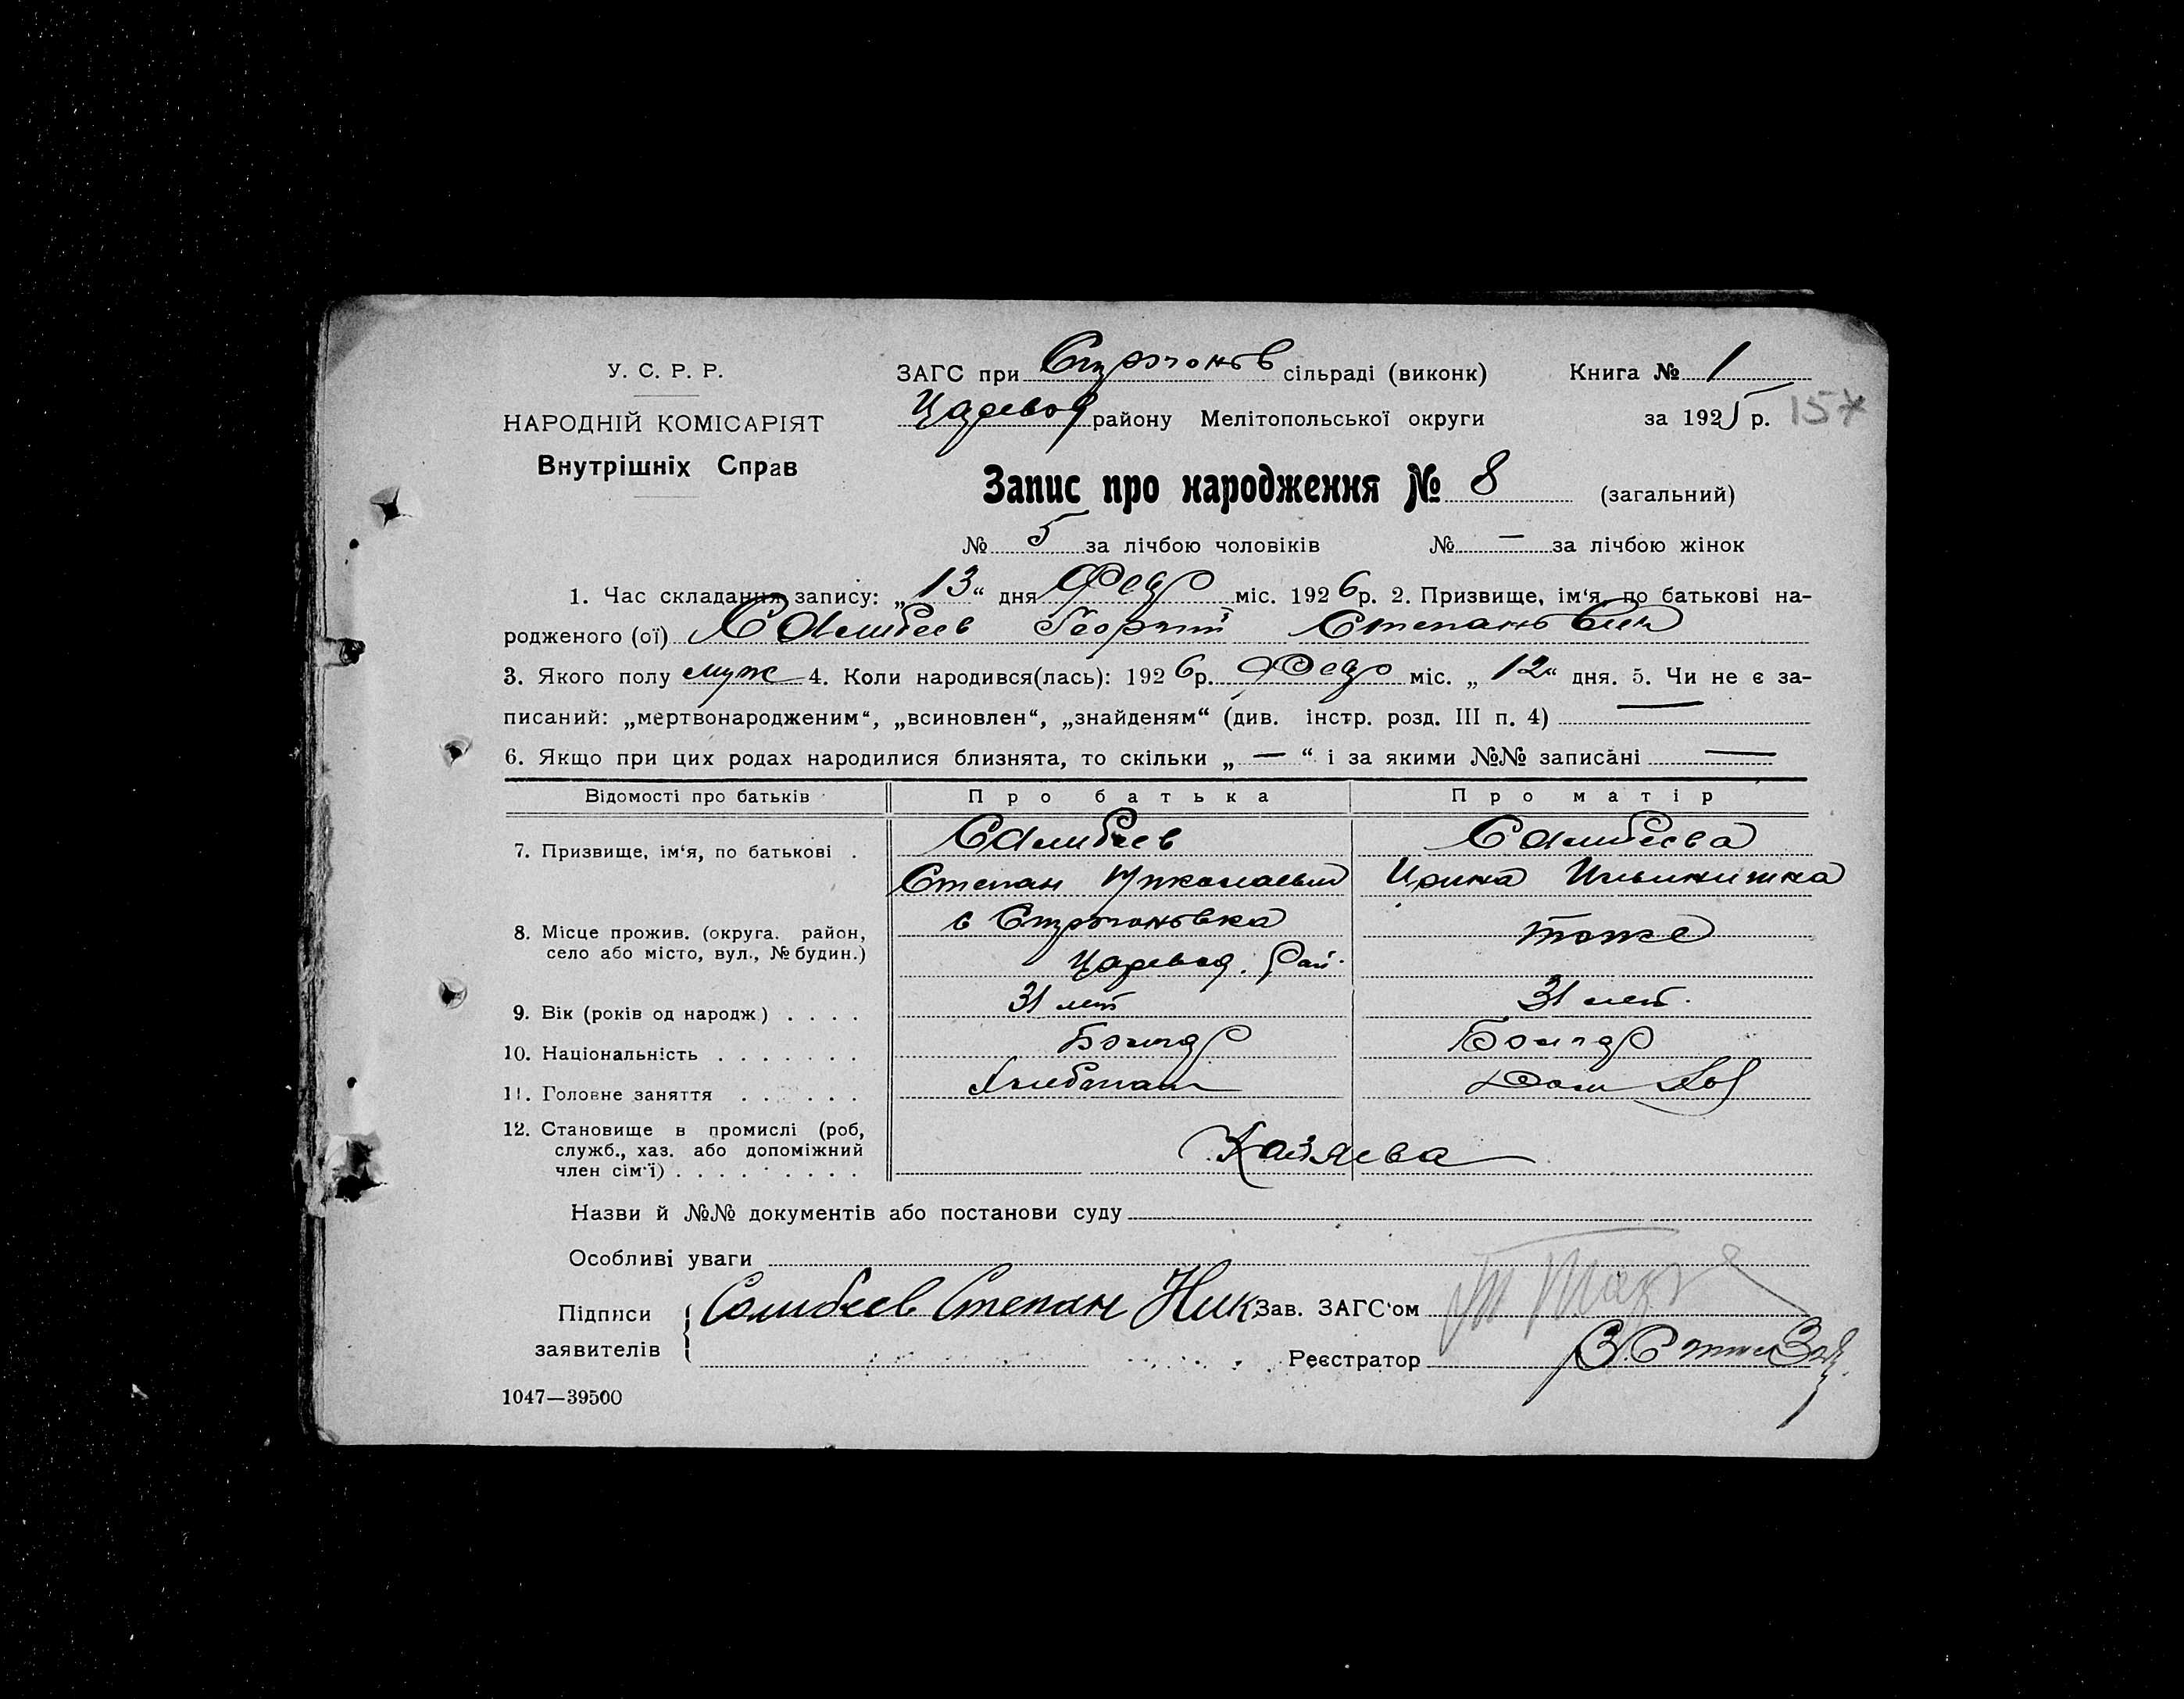 У. С. Р. Р.
НАРОДНІЙ КОМІСАРІЯТ
Внутрішніх Справ
ЗАГС при Строгонов сільраді (виконк) Книга № 1
Царевод району Мелітопольської округи за 1925 р. 157
Запис про народження № 8 (загальний)
№ 5 за лічбою чоловіків № — за лічбою жінок
1. Час складання запису: „13“ дня Февр міс. 1926 р. 2. Призвище, ім‘я, по батькові на-
родженого (ої) Самбеев Георгий Степанович
3. Якого полу муж 4. Коли народився(лась): 1926 р. Февр міс. „12“ дня. 5. Чи не є за-
писаний: „мертвонародженим“, „всиновлен“, „знайденям“ (див. інстр. розд. III п. 4) —
6. Якщо при цих родах народилися близнята, то скільки „ — “ і за якими №№ записані —
Відомості про батьків Про батька Про матір
7. Призвище, ім‘я, по батькові . Самбеев Самбеева
Степан Николаевич Ирина Ильинишна
8. Місце прожив. (округа. район, с Строгоновка тоже
село або місто, вул., № будин.) Царевод. Рай.
9. Вік (років од народж) . . . . 31 лет 31 лет.
10. Національність . . . . . . . Болгар Болгар
11. Головне заняття . . . . . . Хлебопаш Дом Хоз
12. Становище в промислі (роб,
служб., хаз. або допоміжний
член сім‘ї) . . . . . . . . . Хазяева
Назви й №№ документів або постанови суду
Особливі уваги
Підписи Самбеев Степан Ник Зав. ЗАГС‘ом
заявителів Реєстратор
1047—39500